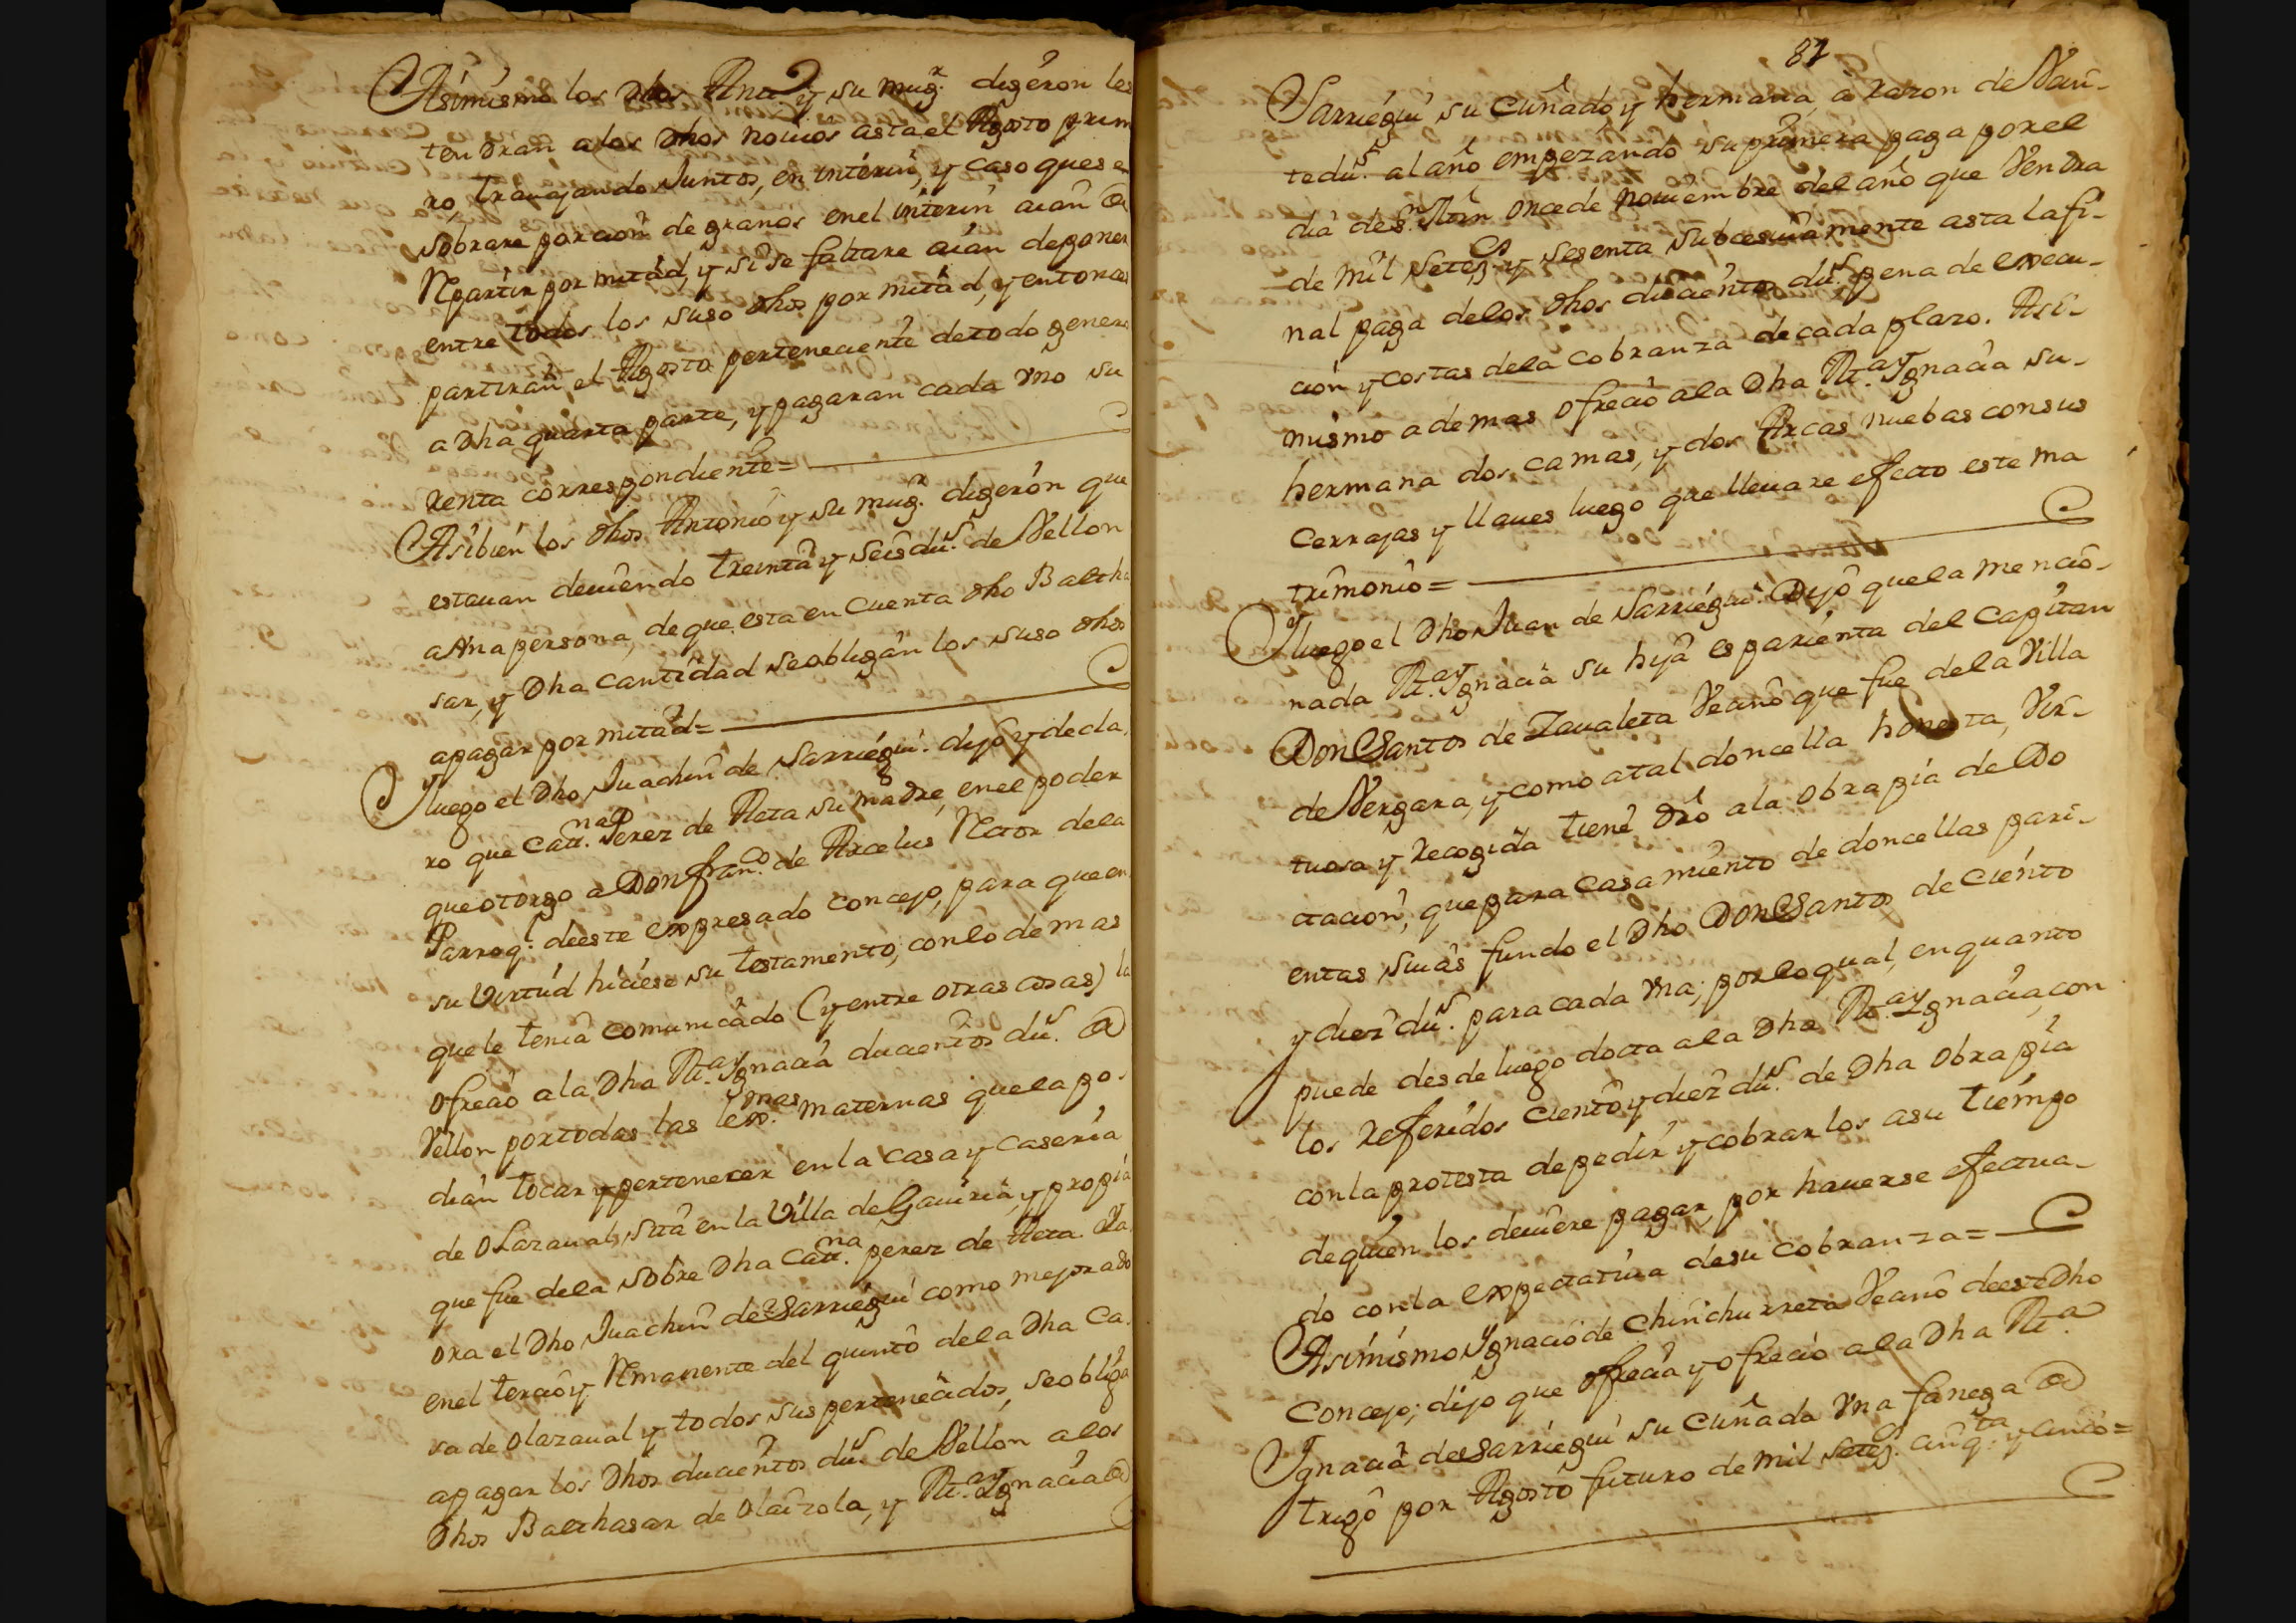 Asimismo los dhos Anto. y su mugr. digeron les
tendran a los dhos novios asta el Agosto prim
ro, travajando Juntos, en interin, y caso que se
sobrare porcion de granos en el interin aian de
Repartir por mitad, y si se faltare aian de poner
entre todos los suso dhos por mitad, y entonces
partiran el Agosto perteneciente de todo genero
a dha quarta parte, y pagaran cada vno su
renta correspondiente=
Asibien los dhos Antonio y su mugr. digeron que
estavan deviendo treinta y seis dus. de Vellon
a vna persona, de que esta en cuenta dho Baltha
sar, y dha cantidad se obligan los suso dhos
a pagar por mitad=
Y luego el dho Juachin de Sarriegui dijo y decla
ro que Catt.na Perez de Aeta su madre, en el poder
que otorgo a Don Franco. de Arcelus Rector de la
Parroql. de este expresado concejo, para que en
su Virtud hiciese su testamento, con lo demas
que le tenia comunicado (y entre otras cosas) la
ofrecio a la dha Ma. Ygnacia ducientos dus. de
Vellon por todas las lexmas. maternas que la po-
dian tocar y pertenecer en la casa y caseria
de Olazaual, sita en la Villa de Gauiria, y propia
que fue de la sobre dha Catt.na perez de Aeta. Ya
ora el dho Juachin de Sarriegui como mejorado
en el tercio y Remanente del quinto de la dha Ca-
sa de olazaual y todos sus pertenecidos, se obliga
a pagar los dhos ducientos dus. de Vellon a los
dhos Balthasar de Olaizola, y Ma. Ygnacia de
81
Sarriegui su cuñado y hermana, a razon de Vein-
te dus. al año empezando su primera paga por el
dia de Sn. Mrn once de noviembre del año que Vendra
de mil setezs. y sesenta subcesivamente asta la fi-
nal paga de los dhos ducientos dus. pena de execu-
cion y costas de la cobranza de cada plazo. Asi-
mismo ademas ofrecio a la dha Ma. Ygnacia su
hermana dos camas, y dos Arcas nuebas con sus
cerrajas y llaves luego que llevare efecto este ma
trimonio=
Y luego el dho Juan de Sarriegui Dijo que la mencio-
nada Ma. Ygnacia su hija es parienta del Capitan
Don Santos de Zavaleta Vecino que fue de la Villa
de Vergara, y como a tal doncella honesta, Vir-
tuosa y recogida tiene dro a la obra pia de Do
ctacion, que para casamiento de doncellas pari-
entas suias fundo el dho Don Santos de ciento
y diez dus. para cada vna; por lo qual, en quanto
puede desde luego docta a la dha Ma. Ygnacia, con
los referidos ciento y diez dus. de dha obra pia
con la protesta de pedir y cobrarlos a su tiempo
de quien los deviere pagar, por haverse efectua-
do con la expectativa de su cobranza=
Asimismo Ygnacio de Chinchurreta Vecino de este dho
Concejo; dijo que ofrecia y ofrecio a la dha Ma.
Ygnacia de Sarriegui su cuñada vna fanega de
trigo por Agosto futuro de mil setezs. cinqta. y cinco=